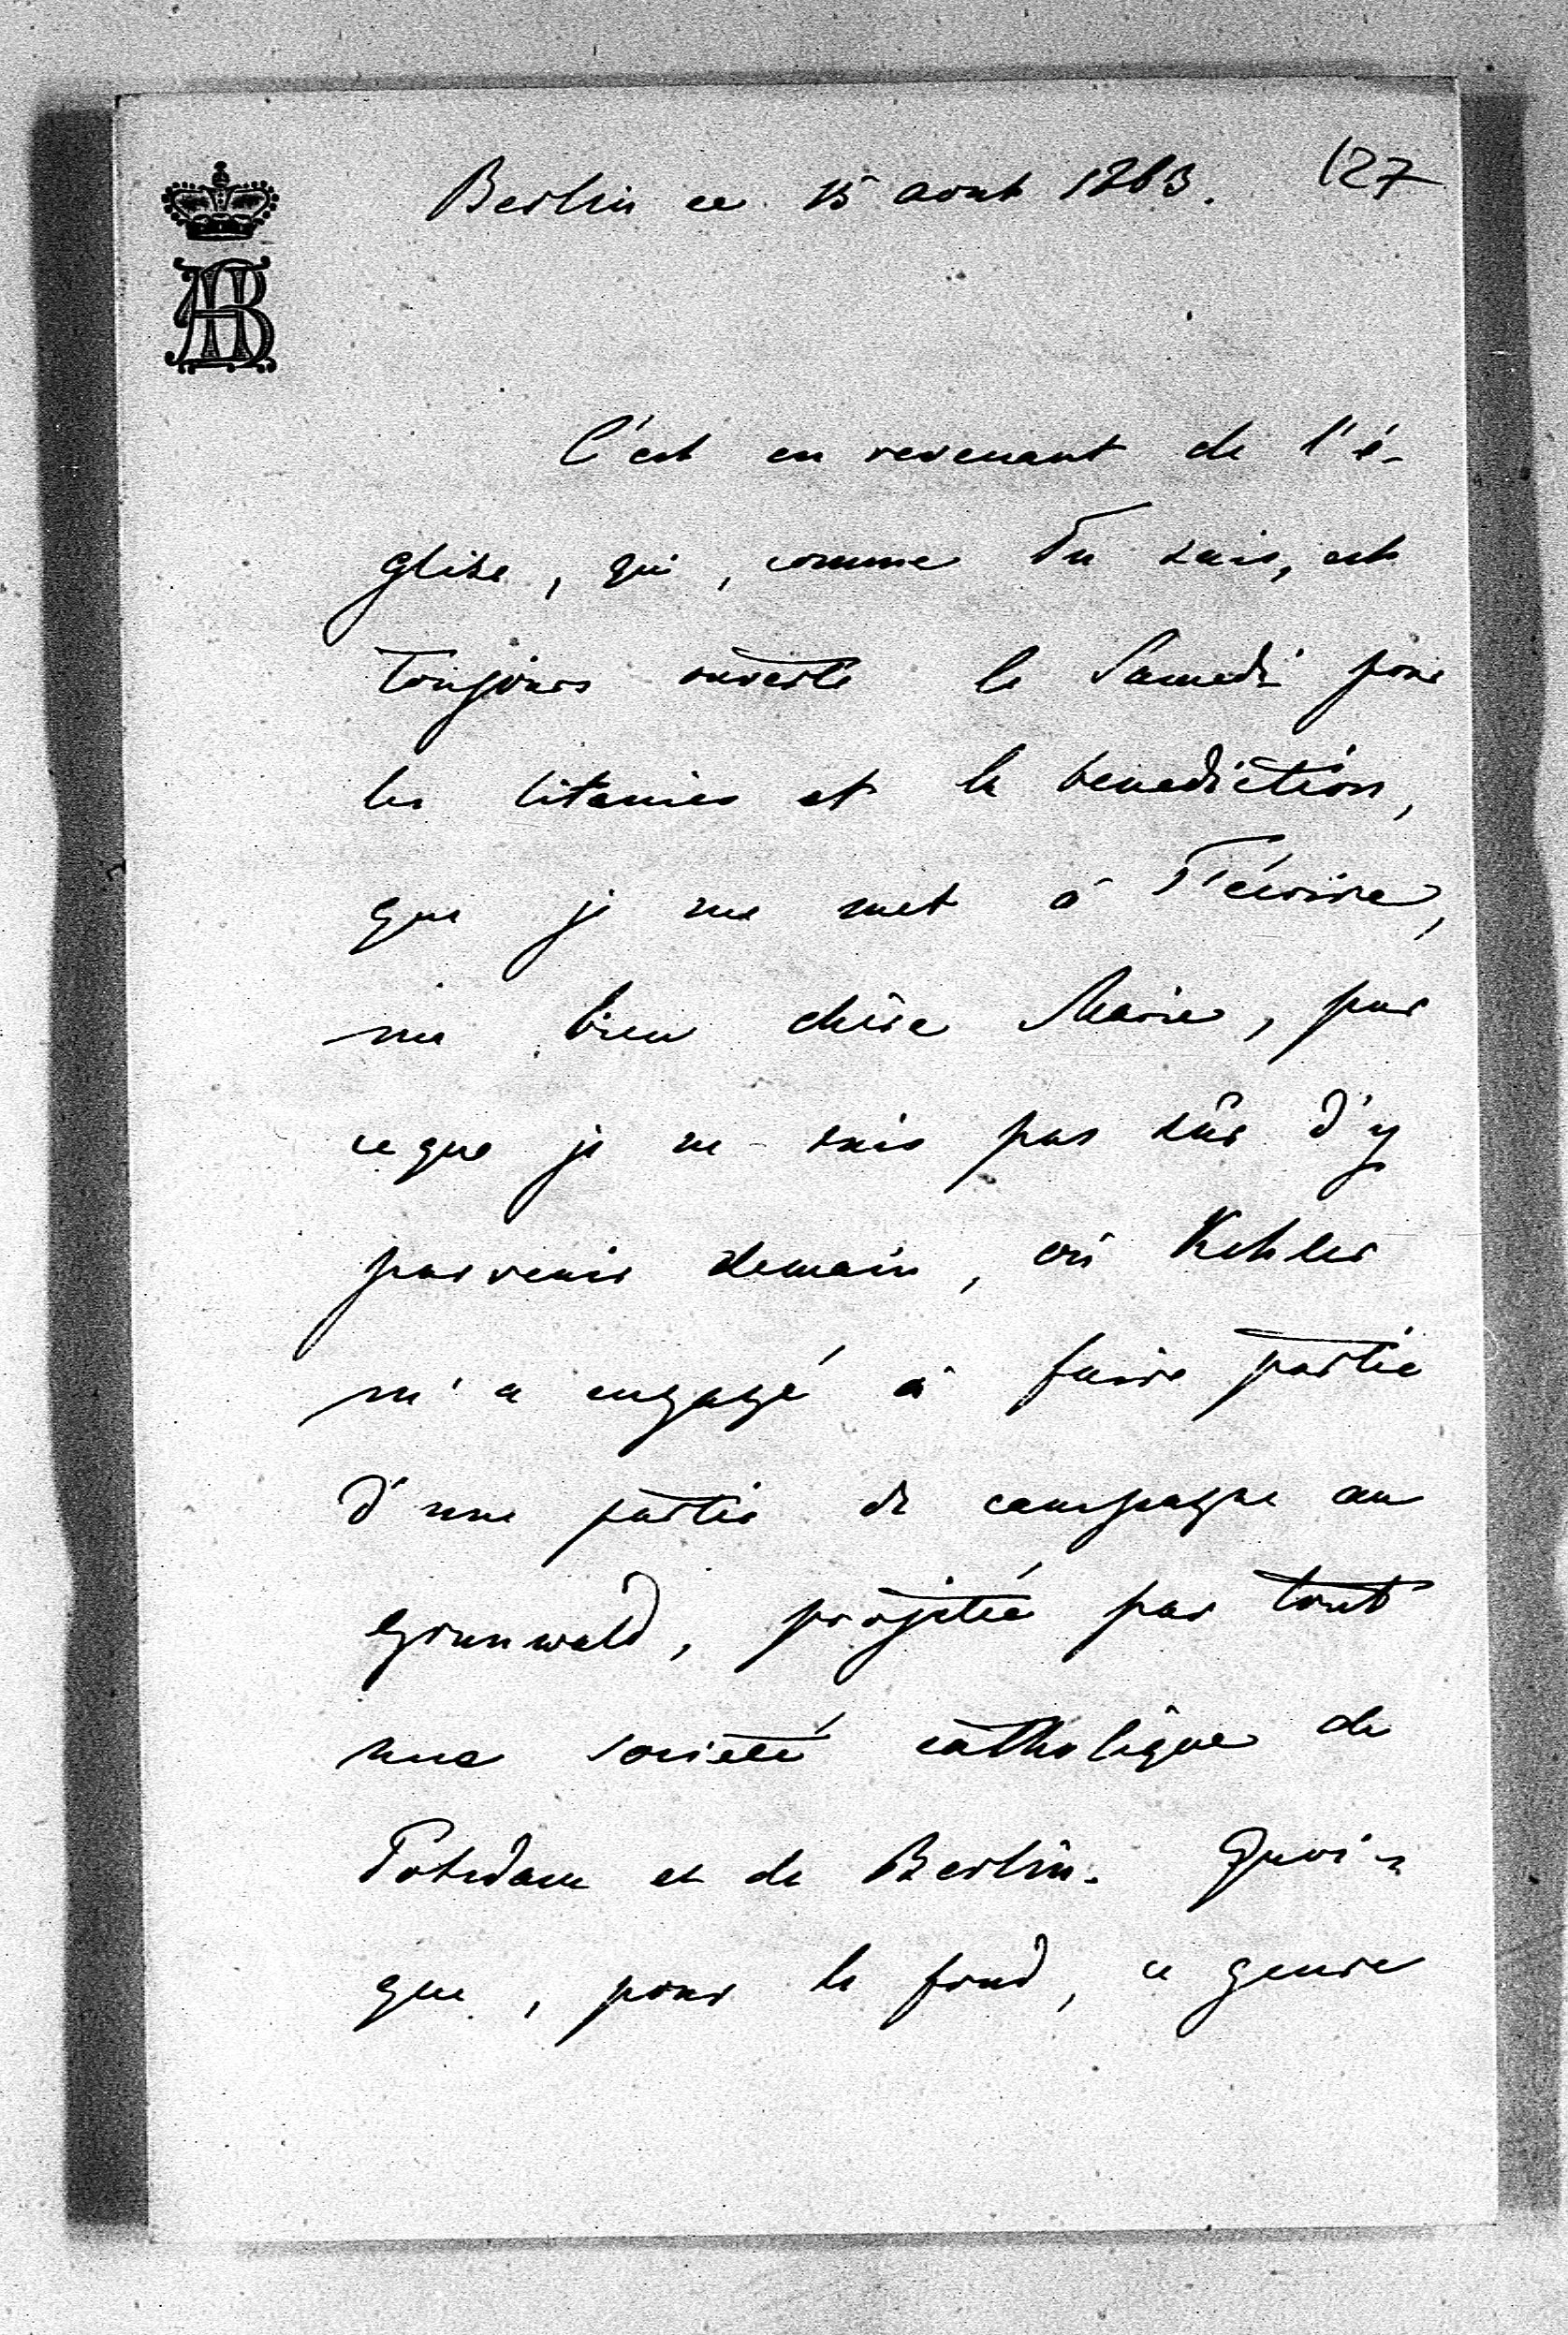 127
Berlin ce 15 aout 1863.
AB
C'est en revenant de l'é-
glise, qui, comme Tu sais, est
toujours ouverte le Samedi pour
les litanies et la benediction,
que je me met à T'écrire,
ma bien chère Marie, par
ceque je ne suis pas sûr d'y
parvenir demain, où Kehler
m'a engagé à faire partie
d'une partie de campagne au
Grunwald, projetée par tout
une societé catholique de
Potsdam et de Berlin. Quoi-
que, pour le fond, ce genre